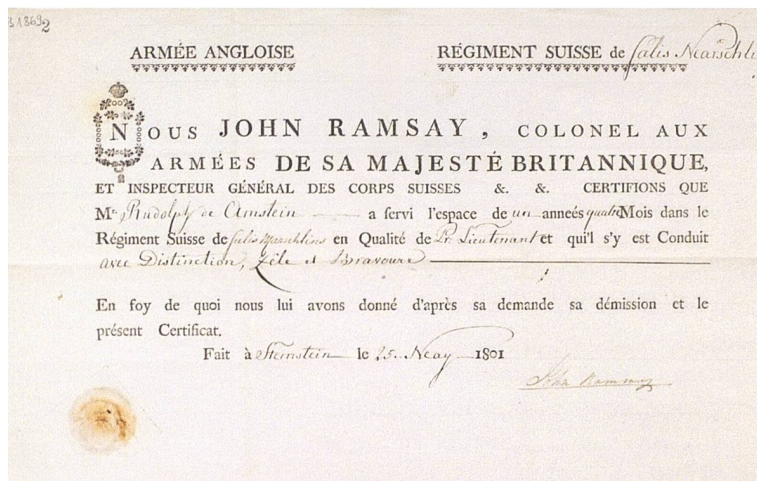 318692
ARMÉE ANGLOISE
RÉGIMENT SUISSE de Salis Marschli
NOUS JOHN RAMSAY, COLONEL AUX
ARMÉES DE SA MAJESTÉ BRITANNIQUE,
ET INSPECTEUR GÉNÉRAL DES CORPS SUISSES &. &. CERTIFIONS QUE
Mr. Rudolph de Amstein a servi l'espace de un anneés quatre Mois dans le
Régiment Suisse de Salis Marschlins en Qualité de Pr. Lieutenant et qu'il s'y est Conduit
avec Distinction, Zéle et Bravoure
En foy de quoi nous lui avons donné d'après sa demande sa démission et le
présent Certificat.
Fait à le 25. May 1801
John Ramsay